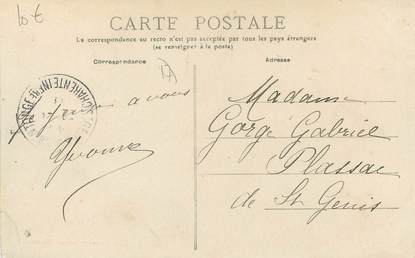 10 €
CARTE POSTALE
La correspondance au recto n'est pas acceptée par tous les pays étrangers
(se renseigner à la poste)
Correspondance
Adresse
a vous
Yvonne
Madame
Gorge Gabriel
Plassac
de St Genis